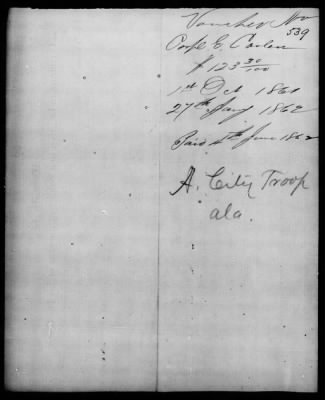 Voucher No
539
Corp E.
$ 123 30/100
1st Oct 1861
27th Jany 1862
Paid 4th June 1862
A. City Troop
ala.